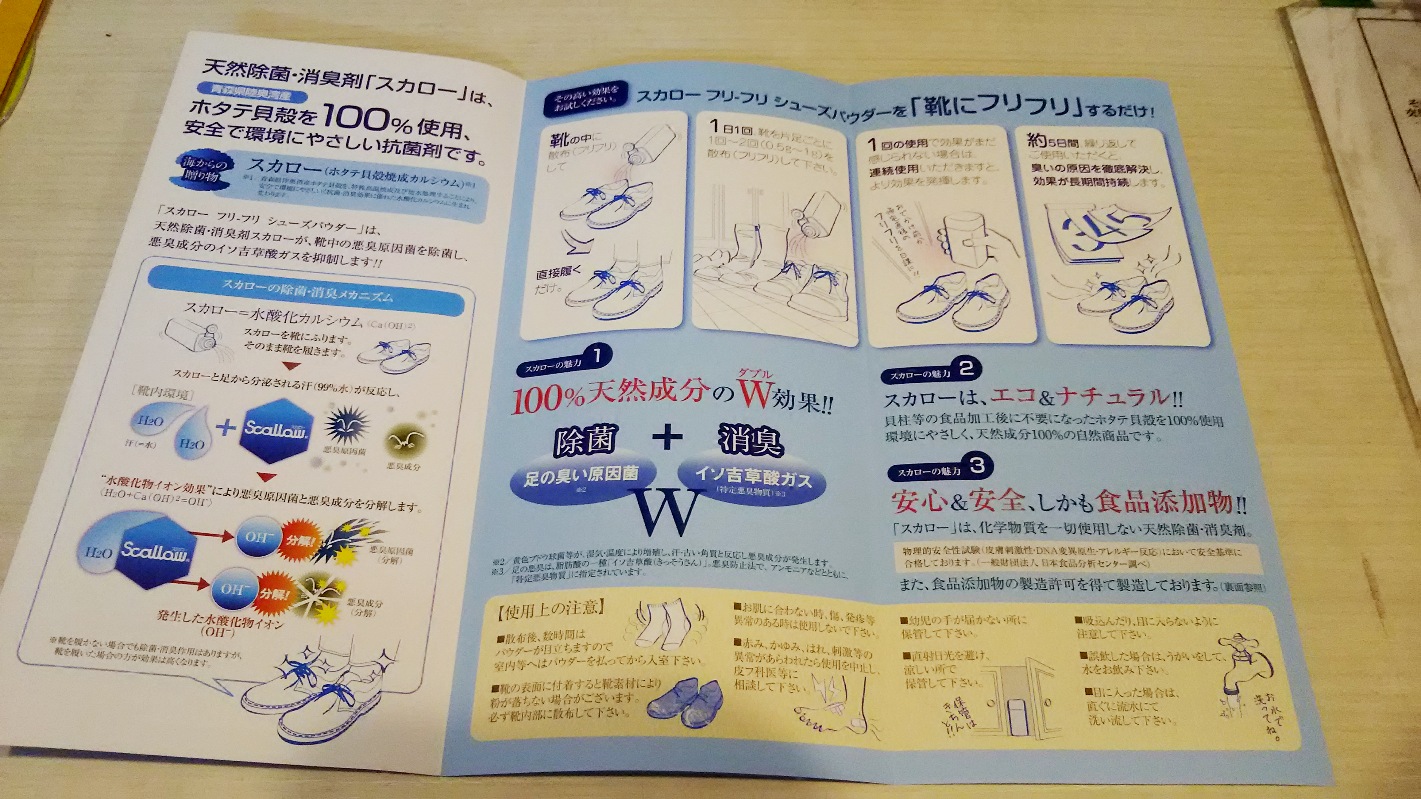 天然除菌・消臭剤「スカロー」は、
青森県陸奥湾産
ホタテ貝殻を100%使用、
安全で環境にやさしい抗菌剤です。
海からの
贈り物
スカロー(ホタテ貝殻焼成カルシウム)※1
「スカロー フリ-フリ シューズパウダー」は、
天然除菌・消臭剤スカローが、靴中の悪臭原因菌を除菌し、
悪臭成分のイソ吉草酸ガスを抑制します!!
スカローの除菌・消臭メカニズム
スカロー=水酸化カルシウム(Ca(OH)2)
スカローを靴にふります。
そのまま靴を履きます。
スカローと足から分泌される汗(99%水)が反応し、
[靴内環境]
H2O
H2O
汗(=水)
+
Scallow
悪臭原因菌
悪臭成分
"水酸化物イオン効果"により悪臭原因菌と悪臭成分を分解します。
(H2O+Ca(OH)2=OH-)
H2O
Scallow
OH-
分解!
悪臭原因菌
(分解)
OH-
分解!
悪臭成分
(分解)
発生した水酸化物イオン
(OH-)
※靴を履かない場合でも除菌・消臭作用はありますが、
靴を履いた場合の方が効果は高くなります。
その高い効果を
お試しください。
スカロー フリ-フリ シューズパウダーを「靴にフリフリ」するだけ!
靴の中に
散布(フリフリ)
して
直接履く
だけ。
1日1回、靴を片足ごとに
1回〜2回(0.5g〜1g)を
散布(フリフリ)して下さい。
1回の使用で効果がまだ
感じられない場合は、
連続使用いただきますと、
より効果を発揮します。
約5日間 繰り返して
ご使用いただくと、
臭いの原因を徹底解決し、
効果が長期間持続します。
3 4 5
スカローの魅力 1
100%天然成分のW効果!!
ダブル
除菌 + 消臭
足の臭い原因菌
※2
イソ吉草酸ガス
(特定悪臭物質)※3
W
※2/黄色ブドウ球菌等が、湿気・温度により増殖し、汗・古い角質と反応し悪臭成分が発生します。
※3/足の悪臭は、脂肪酸の一種「イソ吉草酸(きっそうさん)」。悪臭防止法で、アンモニアなどとともに、
「特定悪臭物質」に指定されています。
スカローの魅力 2
スカローは、エコ&ナチュラル!!
貝柱等の食品加工後に不要になったホタテ貝殻を100%使用
環境にやさしく、天然成分100%の自然商品です。
スカローの魅力 3
安心&安全、しかも食品添加物!!
「スカロー」は、化学物質を一切使用しない天然除菌・消臭剤。
物理的安全性試験(皮膚刺激性・DNA変異原生・アレルギー反応)において安全基準に
合格しております。(一般財団法人 日本食品分析センター調べ)
また、食品添加物の製造許可を得て製造しております。(裏面参照)
【使用上の注意】
■散布後、数時間は
パウダーが目立ちますので
室内等へはパウダーを払ってから入室下さい。
■靴の表面に付着すると靴素材により
粉が落ちない場合がございます。
必ず靴内部に散布して下さい。
■お肌に合わない時、傷、発疹等
異常のある時は使用しないで下さい。
■赤み、かゆみ、はれ、刺激等の
異常があらわれたら使用を中止し、
皮フ科医等に
相談して下さい。
■幼児の手が届かない所に
保管して下さい。
■直射日光を避け、
涼しい所で
保管して下さい。
保管は
きちんと!!
■吸込んだり、目に入らないように
注意して下さい。
■誤飲した場合は、うがいをして、
水をお飲み下さい。
■目に入った場合は、
直ぐに流水にて
洗い流して下さい。
お水で
洗ってね。